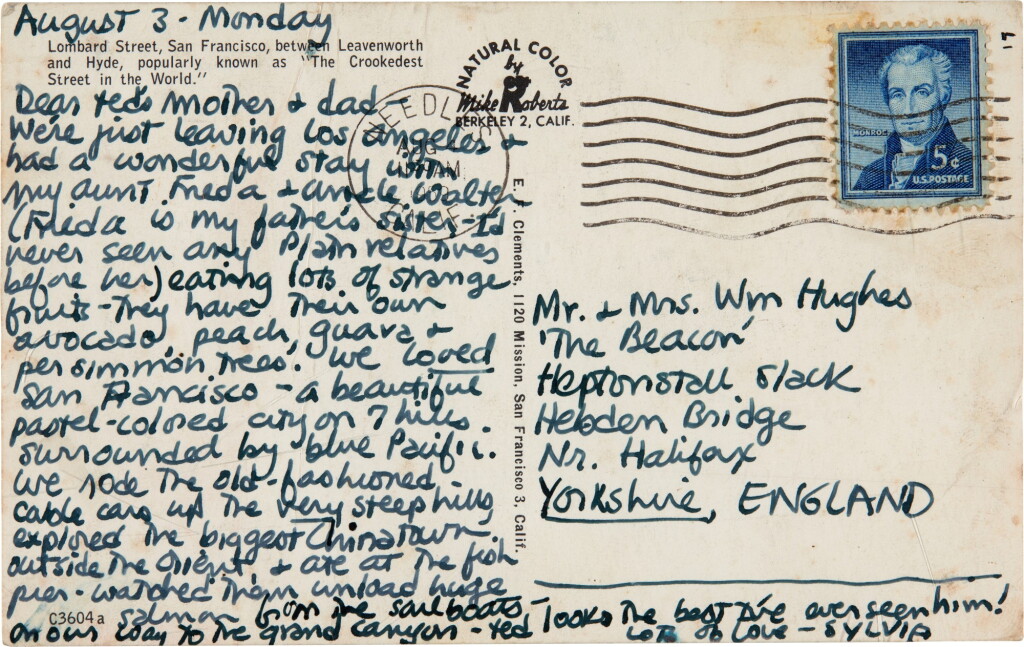 August 3 - Monday
Lombard Street, San Francisco, between Leavenworth
and Hyde, popularly known as "The Crookedest
Street in the World."
Dear Ted's mother & dad
We're just leaving Los Angeles &
had a wonderful stay with
my aunt Frieda & uncle Walter
(Frieda is my father's sister - I'd
never seen any Plath relatives
before her) eating lots of strange
fruits - they have their own
avocado, peach, guava &
persimmon trees. We loved
San Francisco - a beautiful
pastel-colored city on 7 hills
surrounded by blue Pacific.
We rode the old-fashioned
cable cars up the very steep hills,
explored the biggest Chinatown
outside the Orient, & ate at the fish
pier - watched them unload huge
salmon from the sailboats -
C3604a
on our way to the grand canyon - Ted looks the best I've ever seen him!
Lots of love - SYLVIA
NATURAL COLOR
by
Mike Roberts
BERKELEY 2, CALIF.
E. F. Clements, 1120 Mission, San Francisco 3, Calif.
NEEDLES
AUG
AM
CALIF
MONROE
5¢
U.S. POSTAGE
17
Mr. & Mrs. Wm Hughes
'The Beacon'
Heptonstall Slack
Hebden Bridge
Nr. Halifax
Yorkshire, ENGLAND